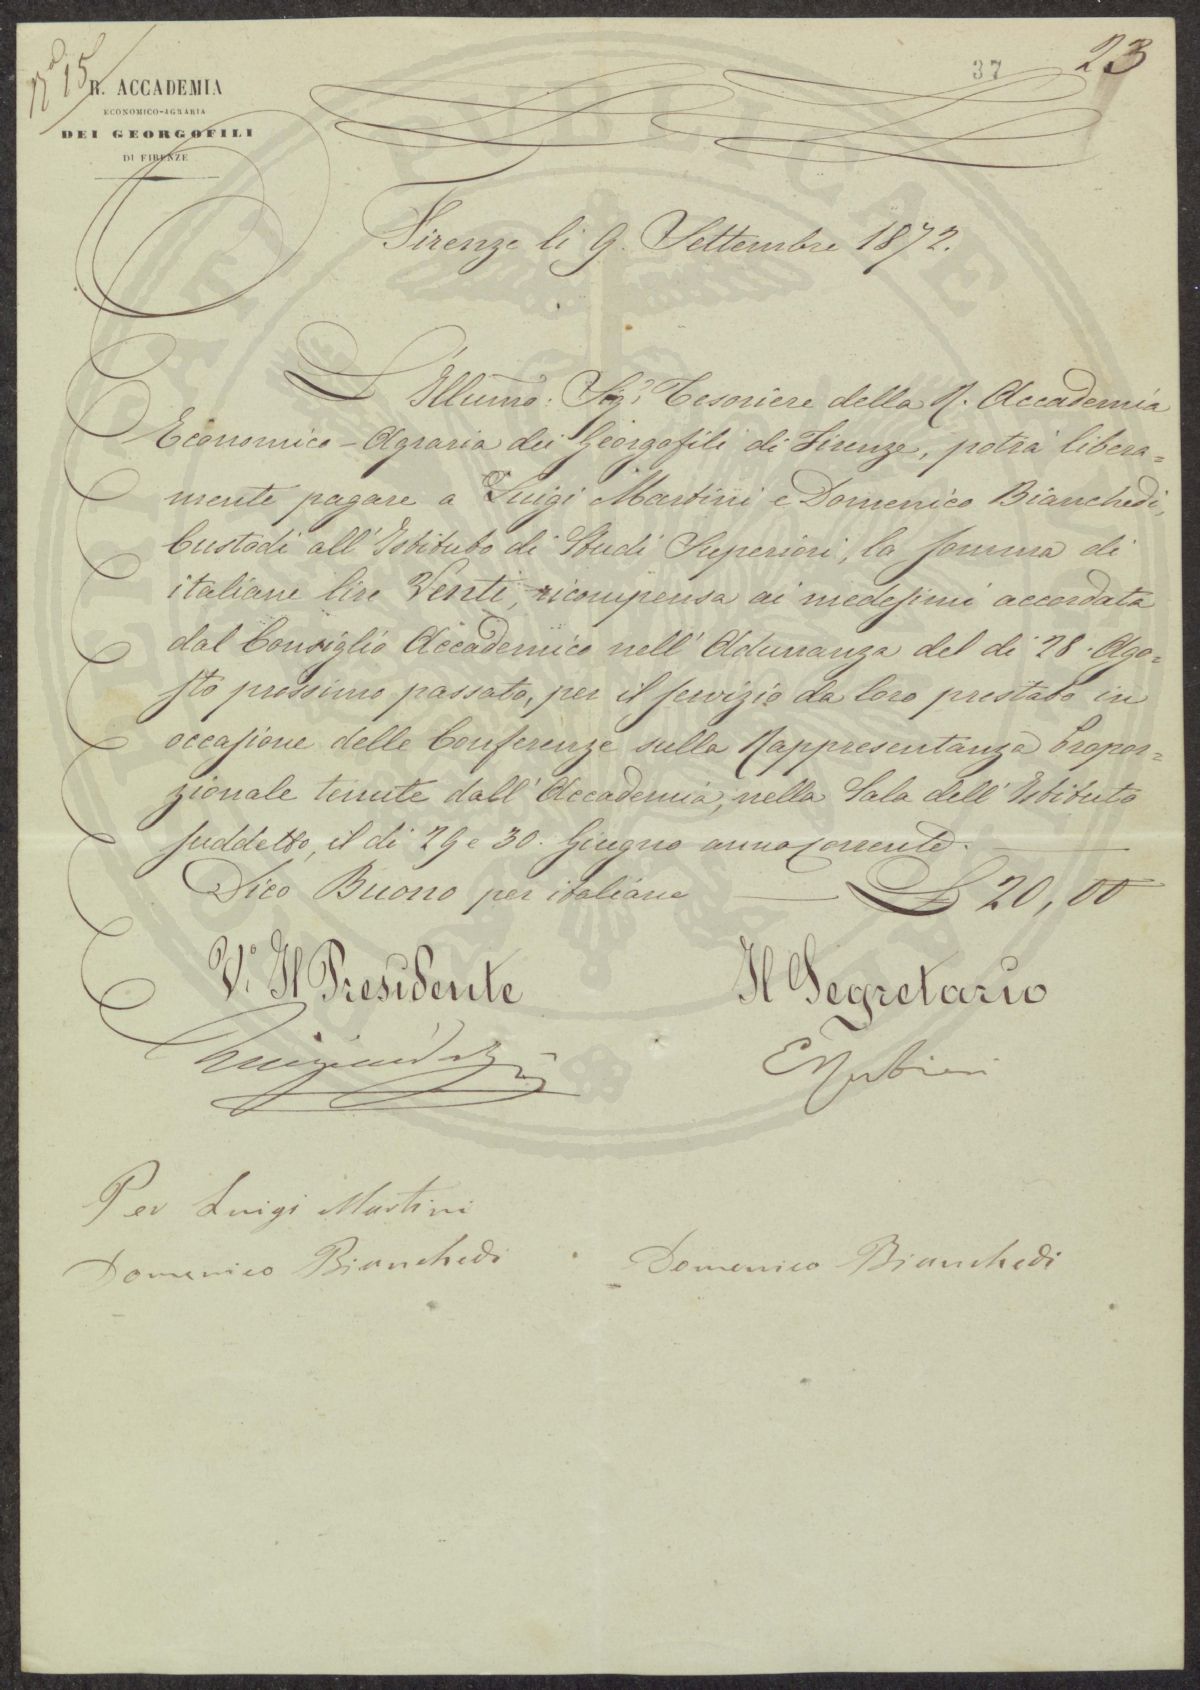 N.° 15
37
23
R. ACCADEMIA
ECONOMICO-AGRARIA
DEI GEORGOFILI
DI FIRENZE
PVBLICAE
Firenze li 9. Settembre 1872.
L'Illumo: Sigr Tesoriere della R. Accademia
Economico-Agraria dei Georgofili di Firenze, potrà libera=
mente pagare a Luigi Martini e Domenico Bianchedi,
Custodi all'Istituto di Studi Superiori, la somma di
italiane lire Venti, ricompensa ai medesimi accordata
dal Consiglio Accademico nell'Adunanza del dì 28. Ago=
sto prossimo passato, per il servizio da loro prestato in
occasione delle Conferenze sulla Rappresentanza Propor=
zionale tenute dall'Accademia, nella Sala dell'Istituto
suddetto, il dì 29 e 30. Giugno anno corrente.
Dico Buono per italiane £ 20,00
V.° Il Presidente
Il Segretario
Per Luigi Martini
Domenico Bianchedi
Domenico Bianchedi